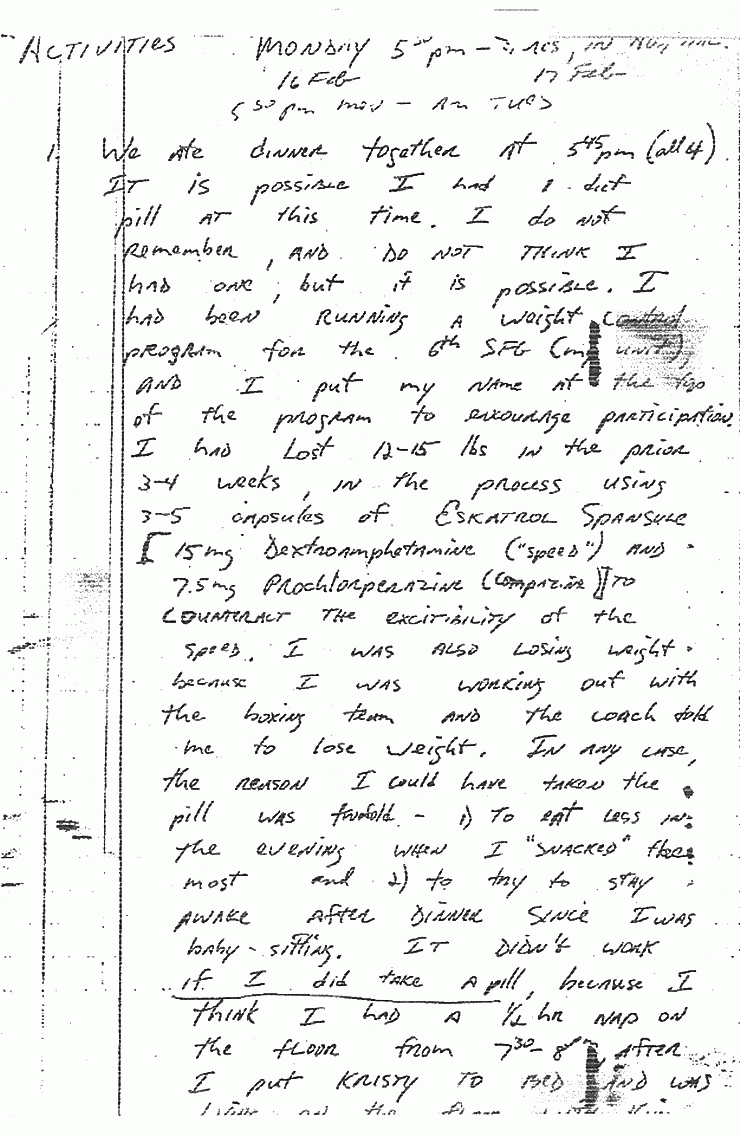 ACTIVITIES MONDAY 5³⁰pm –
16 Feb 17 Feb
5³⁰ pm mon – AM TUES
1. We ate dinner together at 5⁴⁵pm (all 4)
It is possible I had 1 diet
pill at this time. I do not
remember, and do not think I
had one, but it is possible. I
had been running a weight control
program for the 6th SFG (my unit),
and I put my name at the top
of the program to encourage participation.
I had lost 12-15 lbs in the prior
3-4 weeks, in the process using
3-5 capsules of Eskatrol Spansule
[15 mg Dextroamphetamine ("speed") and
7.5 mg Prochlorperazine (Compazine)] to
counteract the excitibility of the
speed. I was also losing weight
because I was working out with
the boxing team and the coach told
me to lose weight. In any case,
the reason I could have taken the
pill was twofold – 1) to eat less in
the evening when I "snacked" the
most and 2) to try to stay
awake after dinner since I was
baby-sitting. It didn't work
if I did take a pill, because I
think I had a 1/2 hr nap on
the floor from 7³⁰–8 after
I put Kristy to bed and was
on the floor with